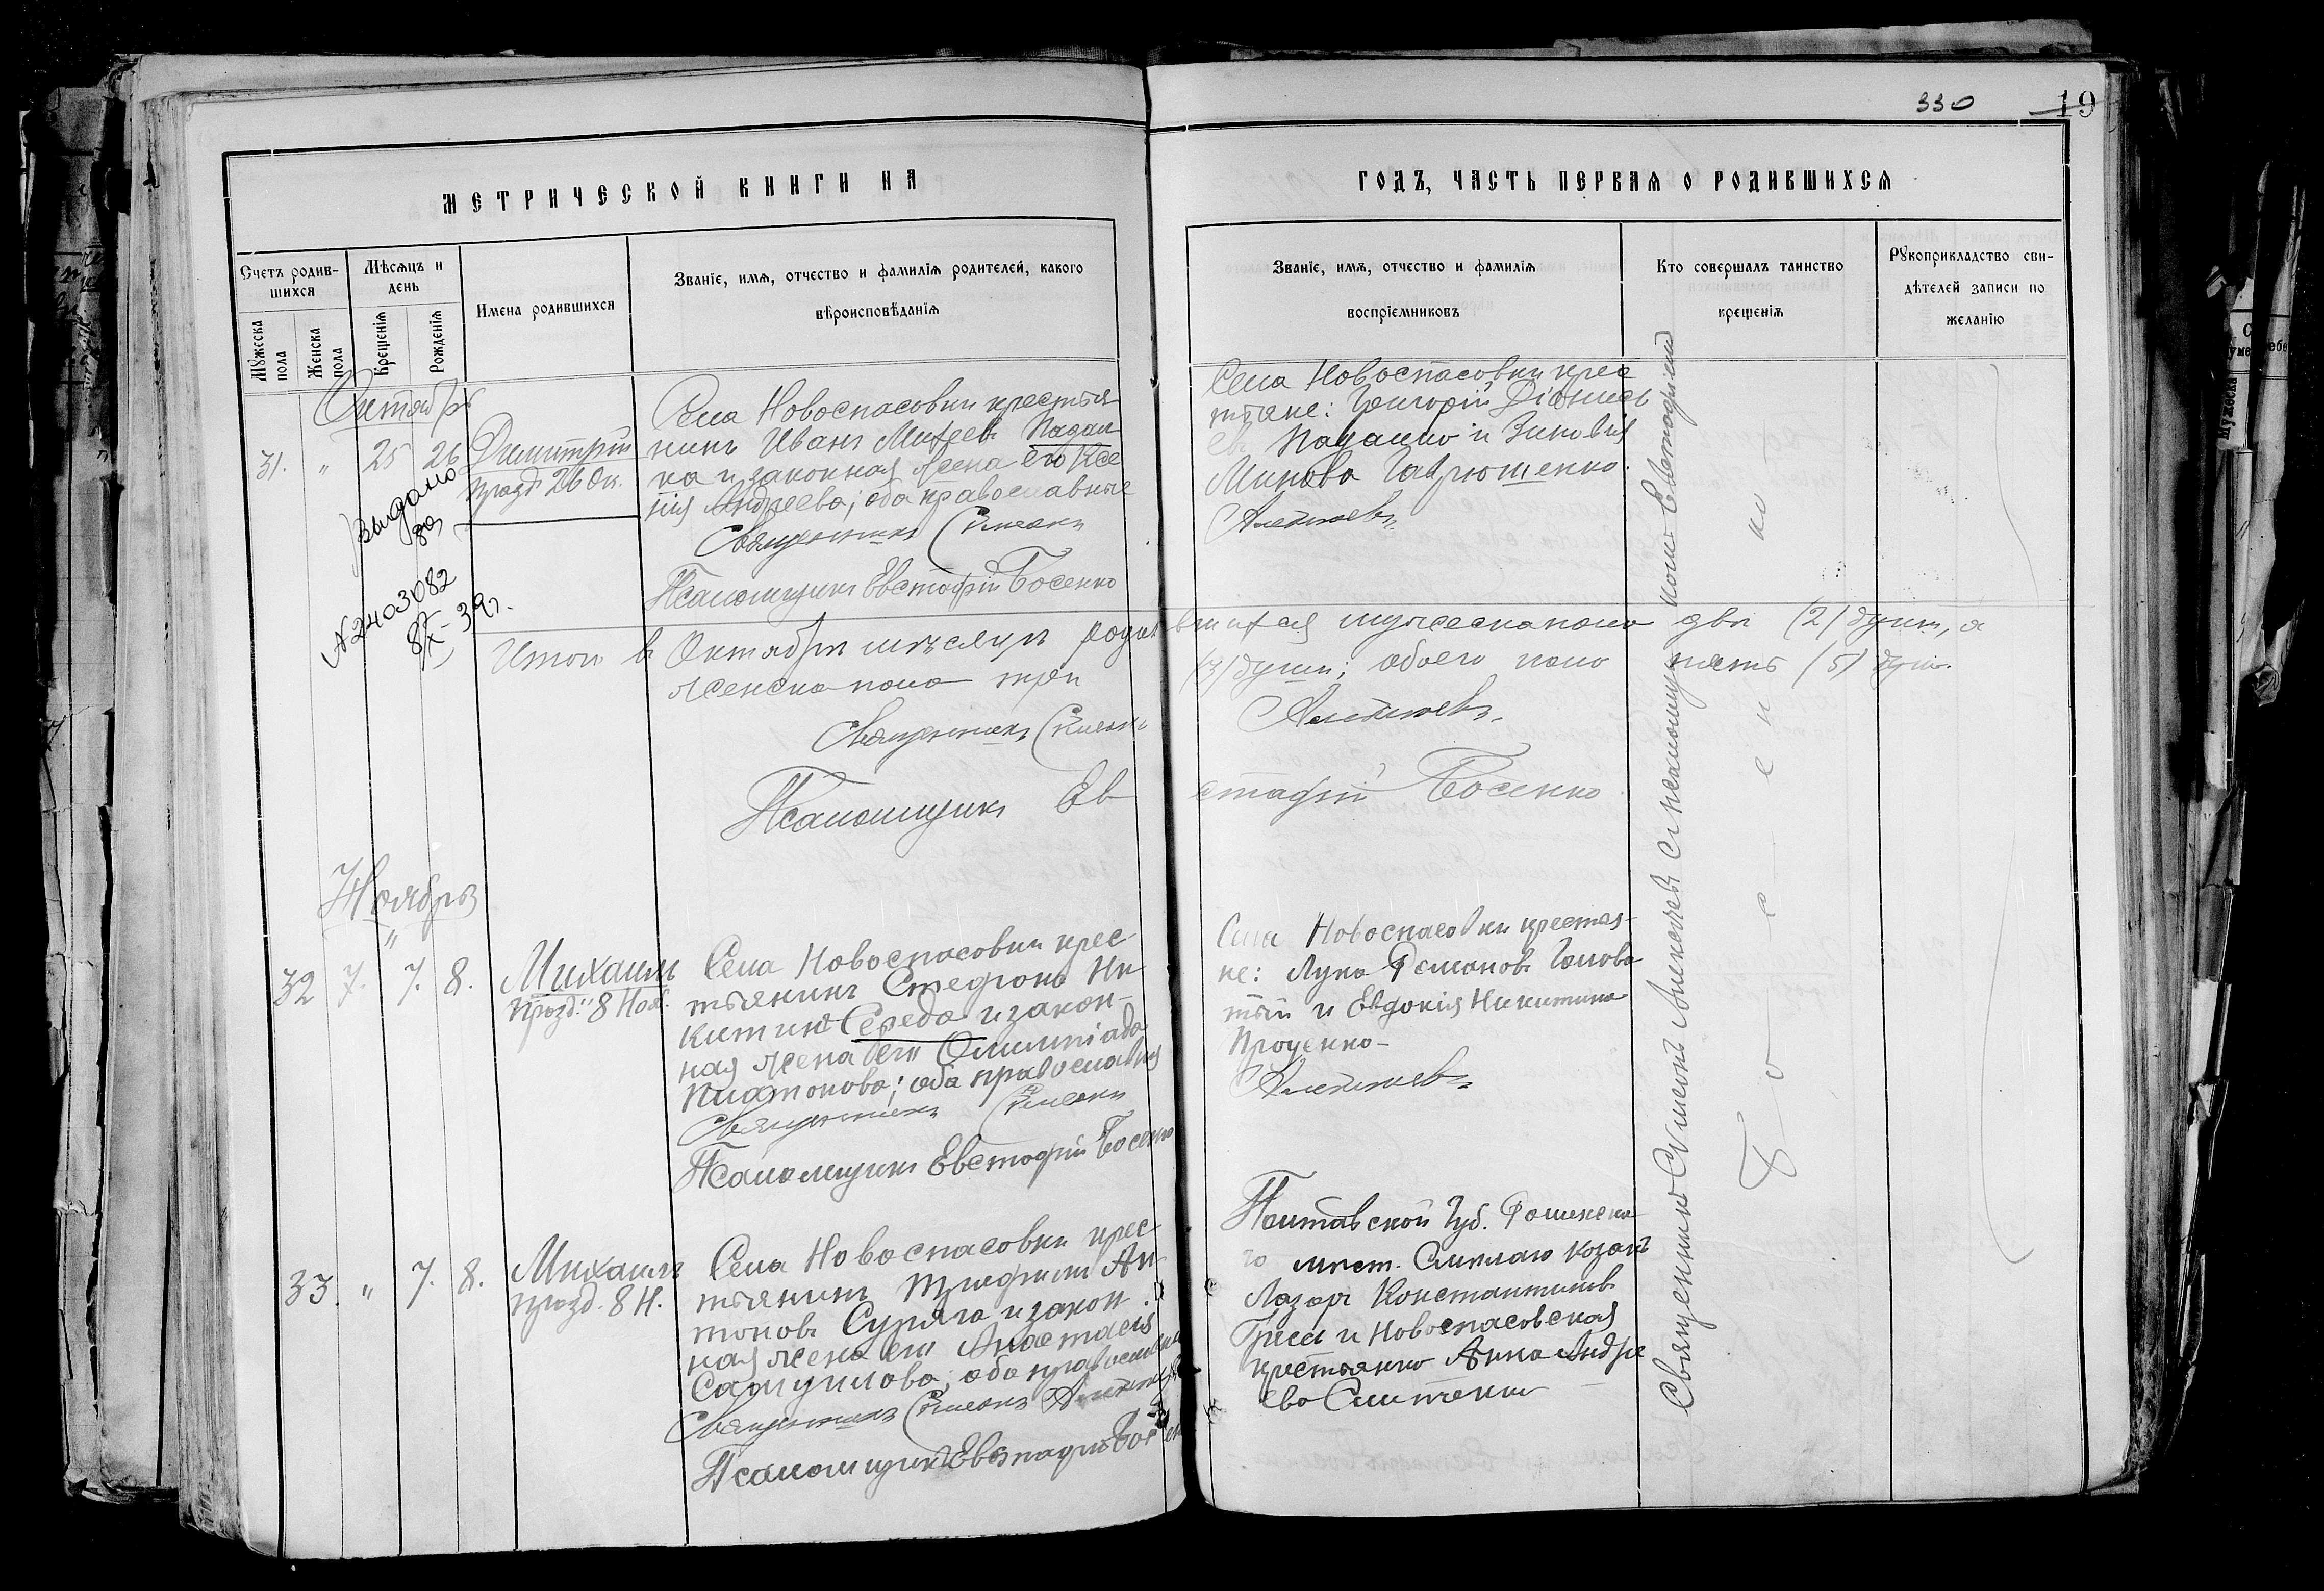 330
19
МЕТРИЧЕСКОЙ КНИГИ НА
ГОДЪ, ЧАСТЬ ПЕРВАЯ О РОДИВШИХСЯ
Счетъ родив-
шихся
Мужеска
пола
Женска
пола
Мѣсяцъ и
день
Крещенія
Рожденія
Имена родившихся
Званіе, имя, отчество и фамилія родителей, какого
вѣроисповѣданія
Званіе, имя, отчество и фамилія
воспріемниковъ
Кто совершалъ таинство
крещенія
Рукоприкладство сви-
дѣтелей записи по
желанію
Октябрь
31. " 25 26
Димитрій
празд. 26 Ок.
Села Новоспасовки крестья-
нинъ Иванъ Михеевъ Падал-
ка и законная жена его Ксе
нія Андреева; оба православные
Священникъ Симеонъ
Псаломщикъ Евстафій Босенко
Села Новоспасовки крес
тьяне: Григорій Діонисі
евъ Падалко и Зиновія
Минова Гаврюшенко.
Выдано
N 2403082
8/X-39г.
Итого въ Октябрѣ мѣсяцѣ родившихся мужеска пола два (2) душъ, а
женска пола три (3) души; обоего пола пять (5) душ.
Священникъ Симеонъ
Псаломщикъ Евстафій Босенко
Ноябрь
32 7. 7. 8.
Михаилъ
празд. 8 Ноя.
Села Новоспасовки крес-
тьянинъ Стефанъ Ни
китинъ Середа и закон-
ная жена его Олимпіада
Платонова; оба православныя
Священникъ Симеонъ
Псаломщикъ Евстафій Босенко
Села Новоспасовки крестья-
не: Лука Романовъ Голова
тый и Евдокія Никитина
Проценко-
33. " 7. 8.
Михаилъ
празд. 8 Н.
Села Новоспасовки крес-
тьянинъ Трифилій Ан-
тоновъ Суряга и закон-
ная жена его Анастасія
Самуилова; оба православныя
Священникъ Симеонъ
Псаломщикъ Евстафій Босен
Полтавской Губ. Роменска
го мѣст. Смѣлаго козакъ
Лазарь Константиновъ
и Новоспасовская
крестьянка Анна Андре
ева
Священникъ Симеонъ съ псаломщикомъ Евстафіемъ
Б-о-с-е-н-ко